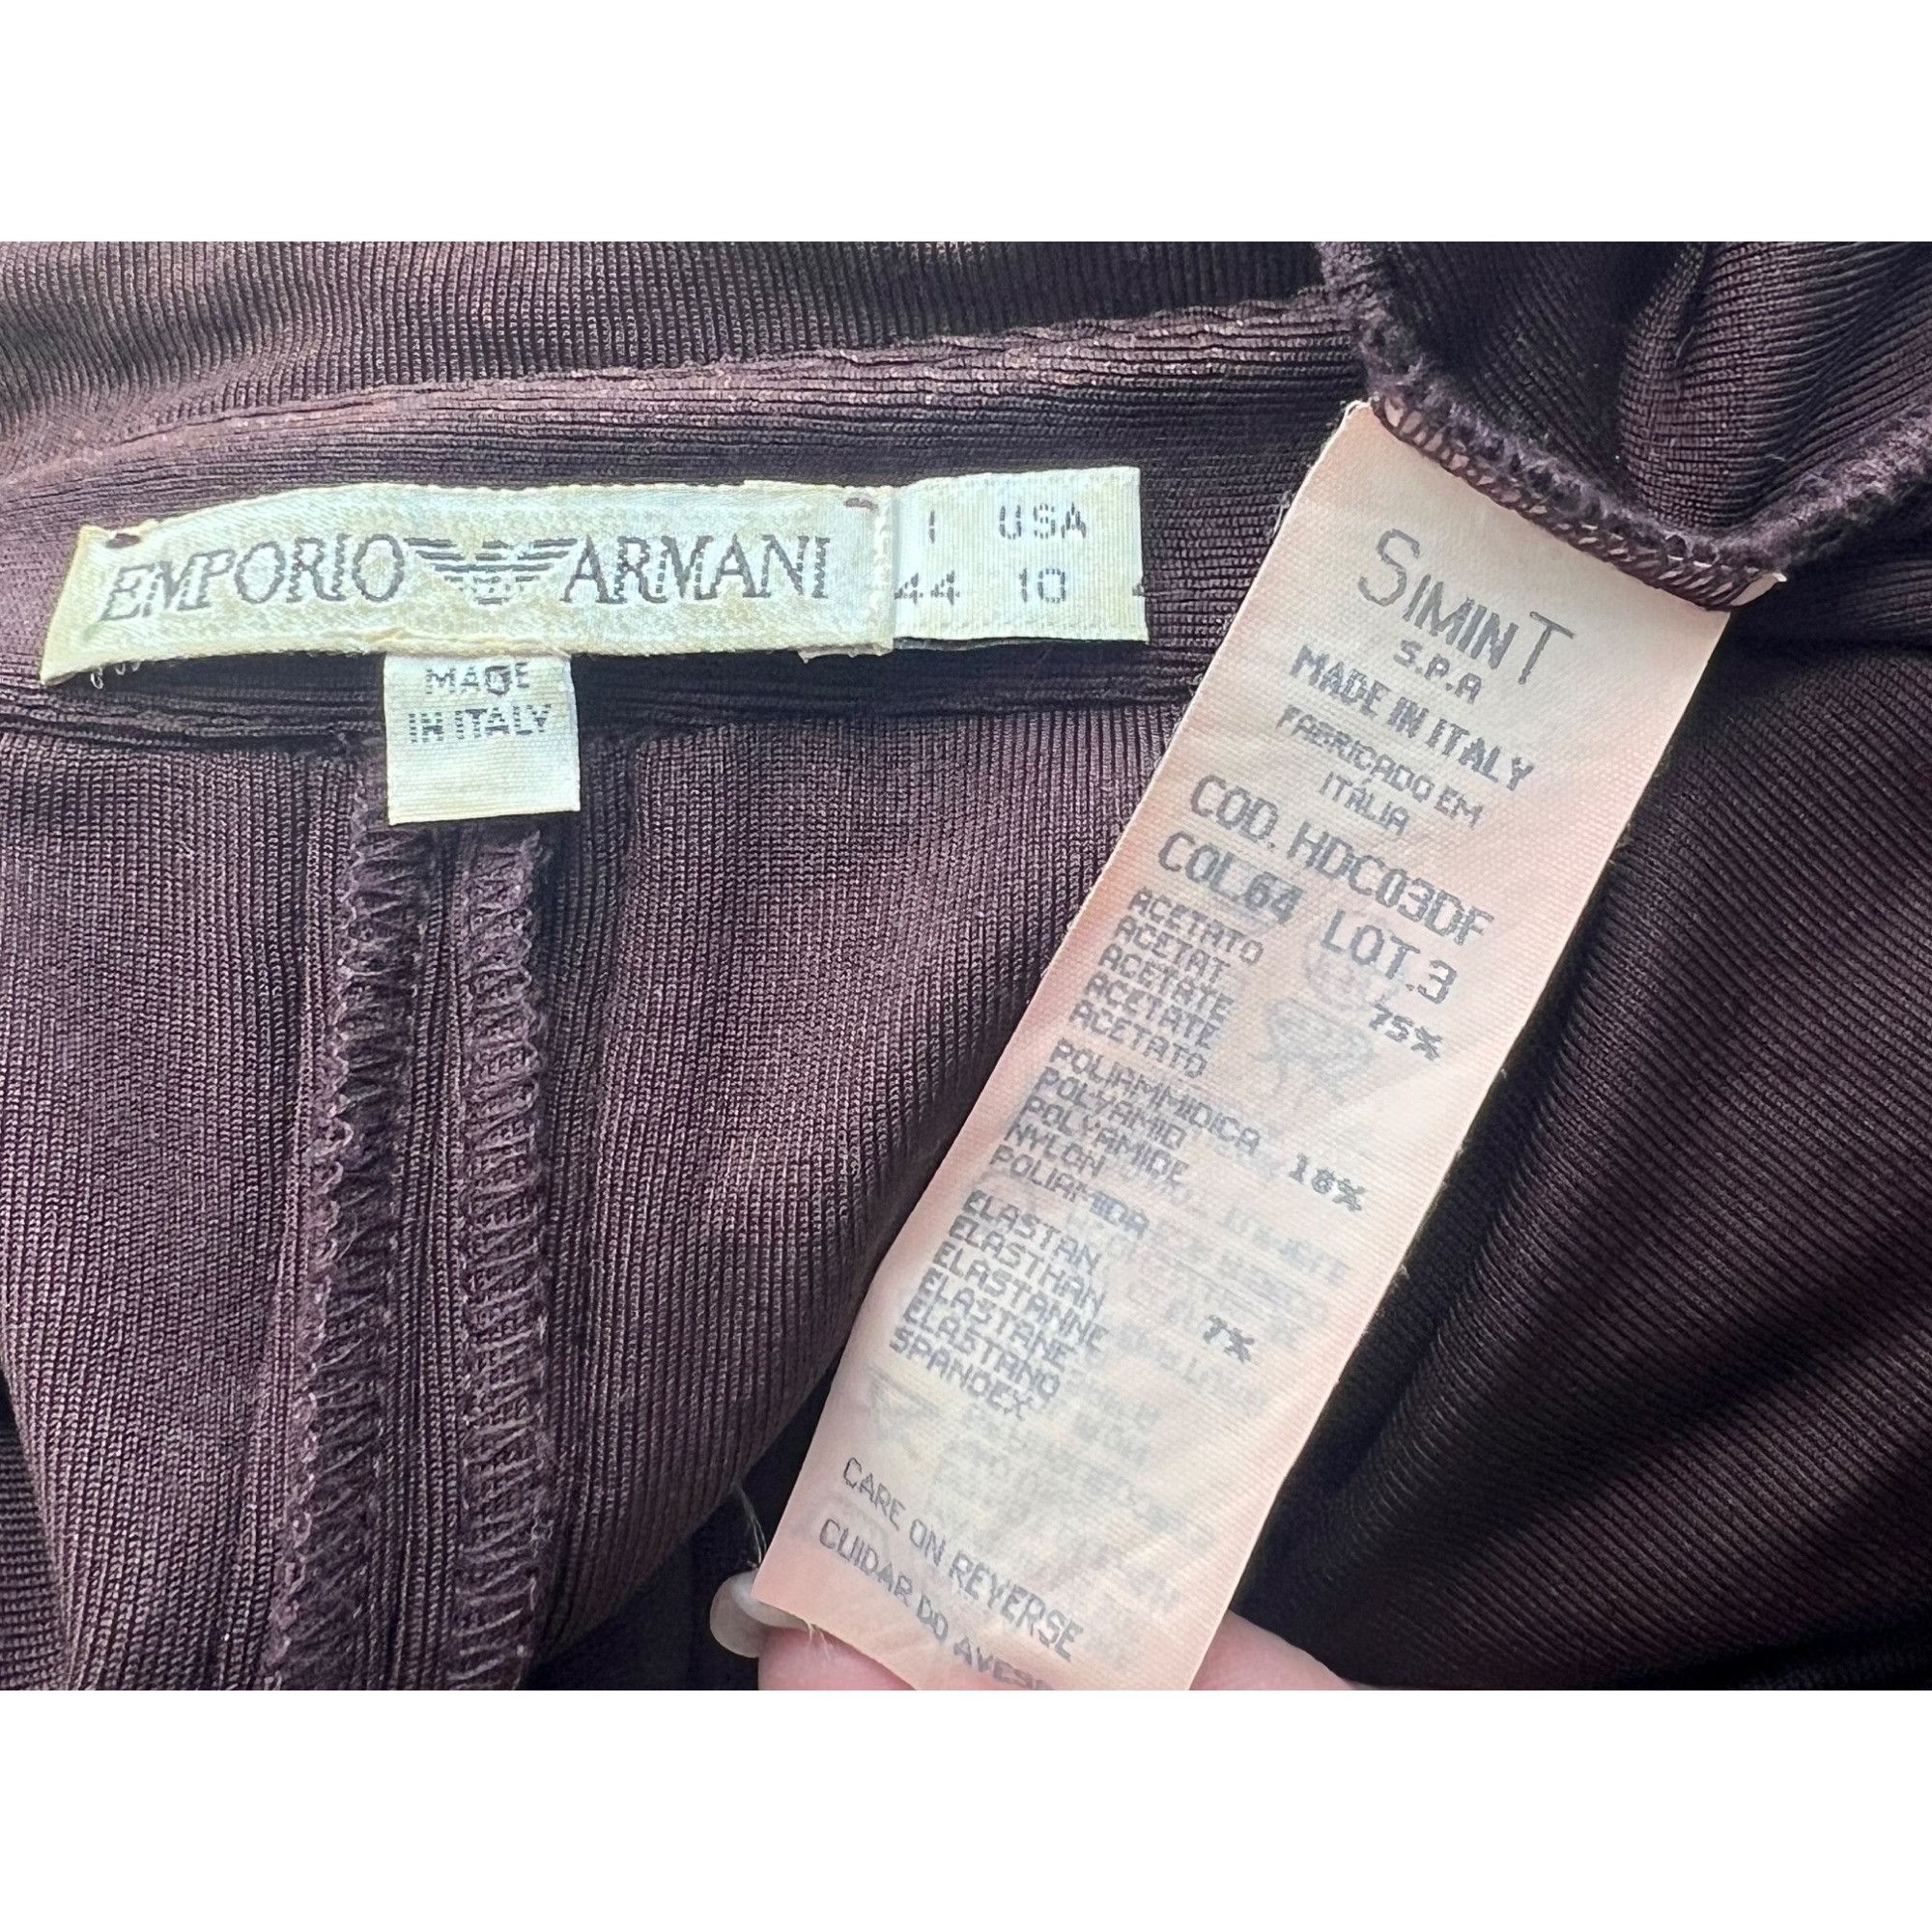 EMPORIO ARMANI
I USA
44 10
MADE
IN ITALY
SIMINT
S.P.A
MADE IN ITALY
FABRICADO EM
ITÁLIA
COD. HDC03DF
COL.64 LOT.3
ACETATO
ACETAT
ACETATE 75%
ACETATE
ACETATO
POLIAMMIDICA
POLYAMID
POLYAMIDE 18%
NYLON
POLIAMIDA
ELASTAN
ELASTHAN
ELASTANNE
ELASTANE 7%
ELASTANO
SPANDEX
CARE ON REVERSE
CUIDAR DO